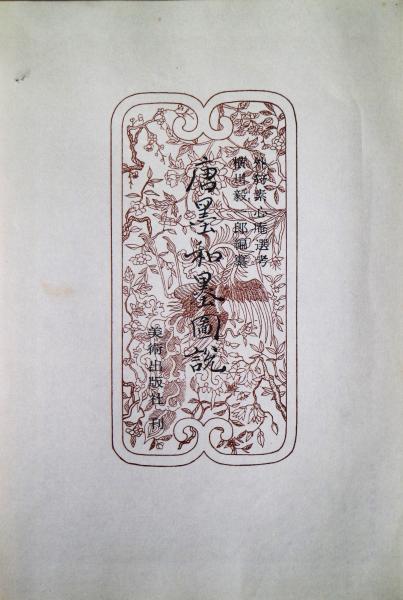 外狩素心庵選考
横田毅一郎編纂
唐墨和墨圖説
美術出版社 刊